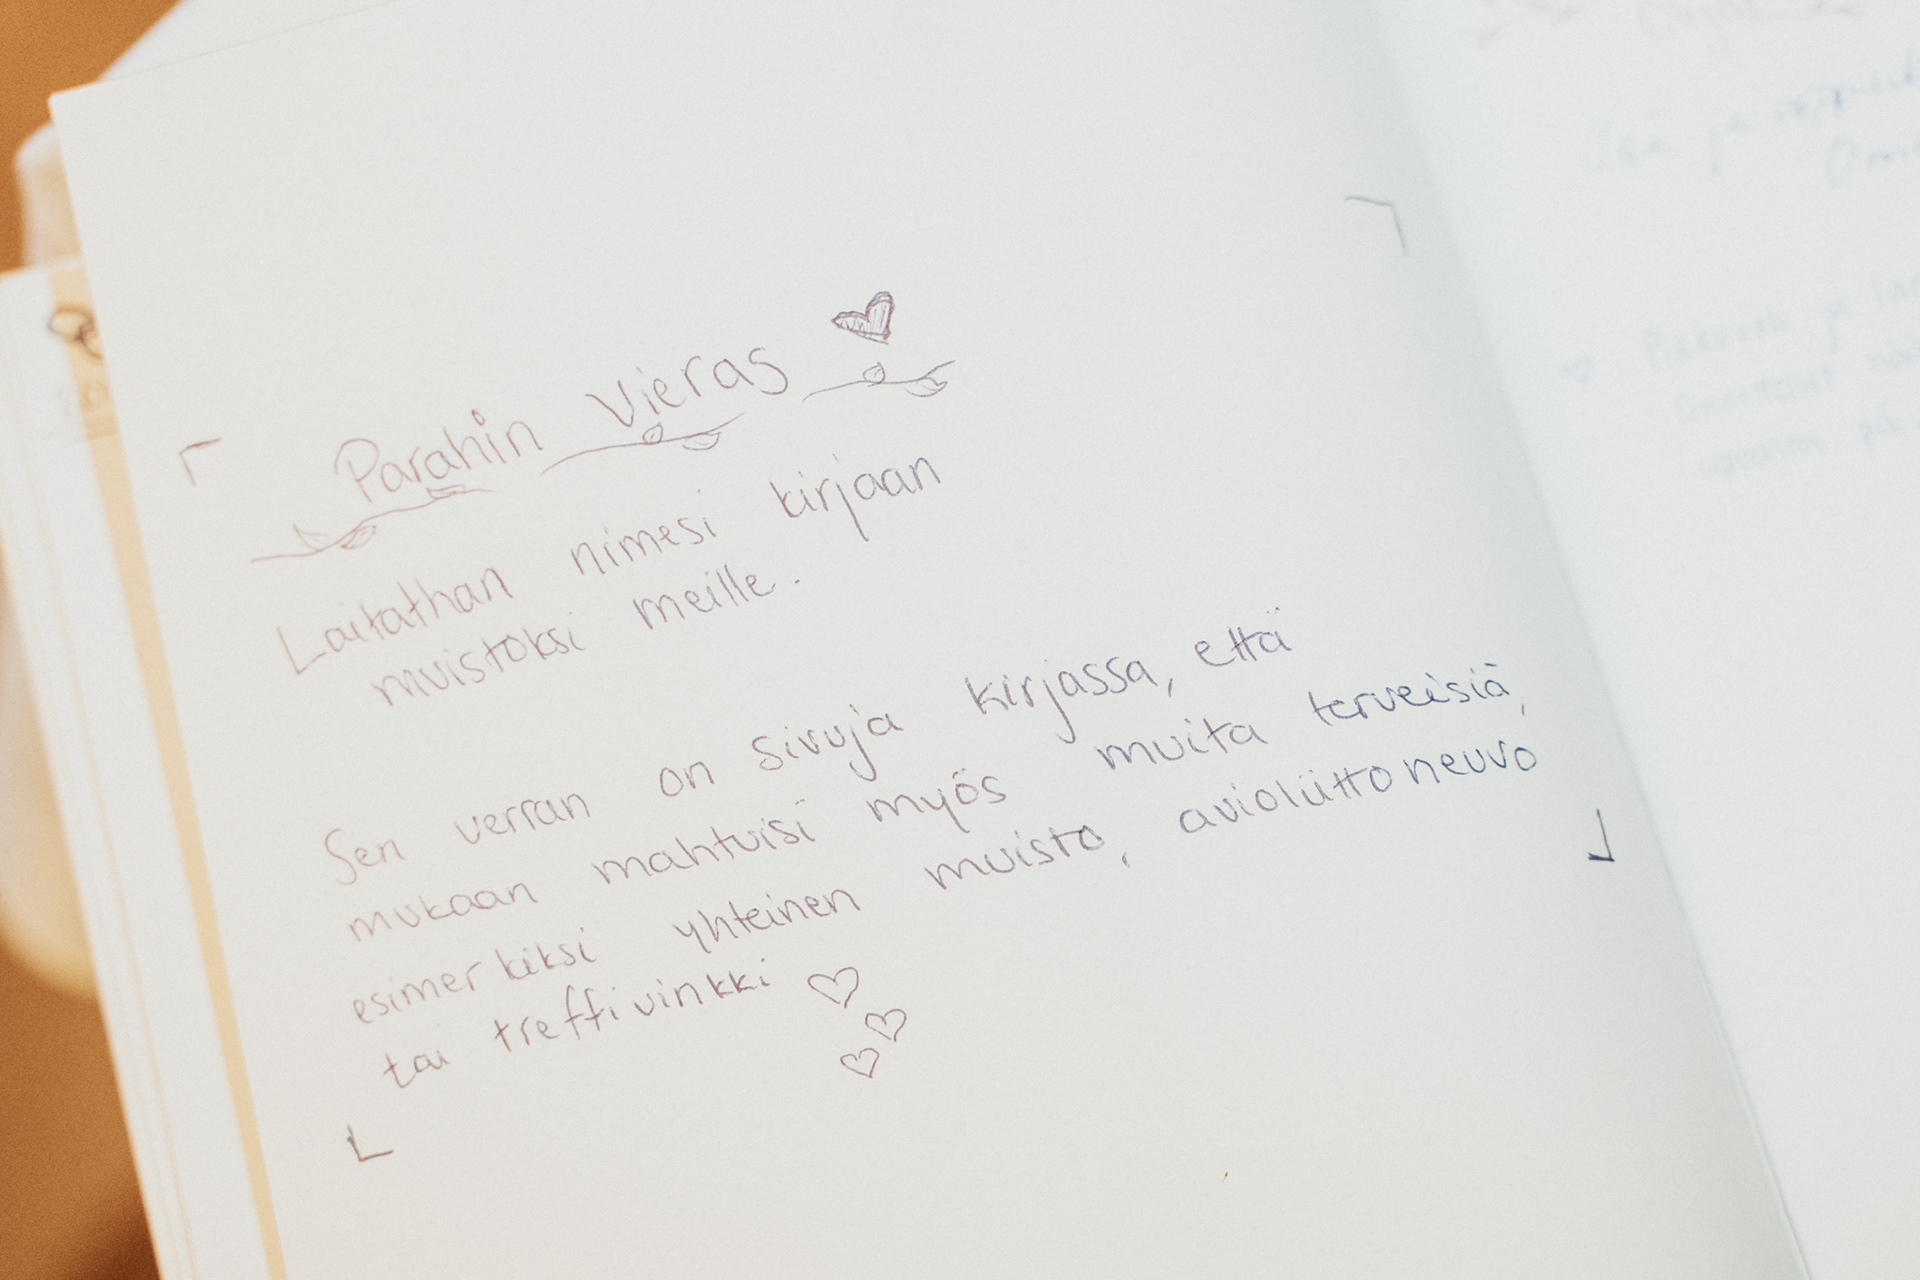 Parahin Vieras
Laitathan nimesi kirjaan
muistoksi meille.
Sen verran on sivuja kirjassa, että
mukaan mahtuisi myös muita terveisiä,
esimerkiksi yhteinen muisto, avioliittoneuvo
tai treffivinkki